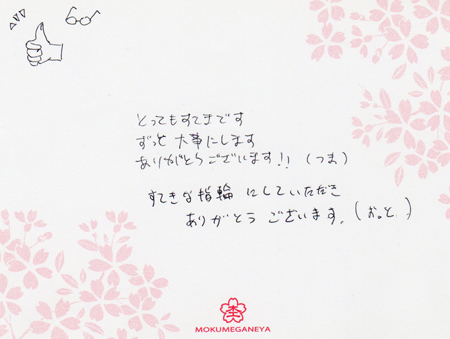 とってもすてきです
ずっと 大事にします
ありがとうございます!! (つま)
すてきな指輪 にしていただき
ありがとう ございます. (おっと)
杢
MOKUMEGANEYA